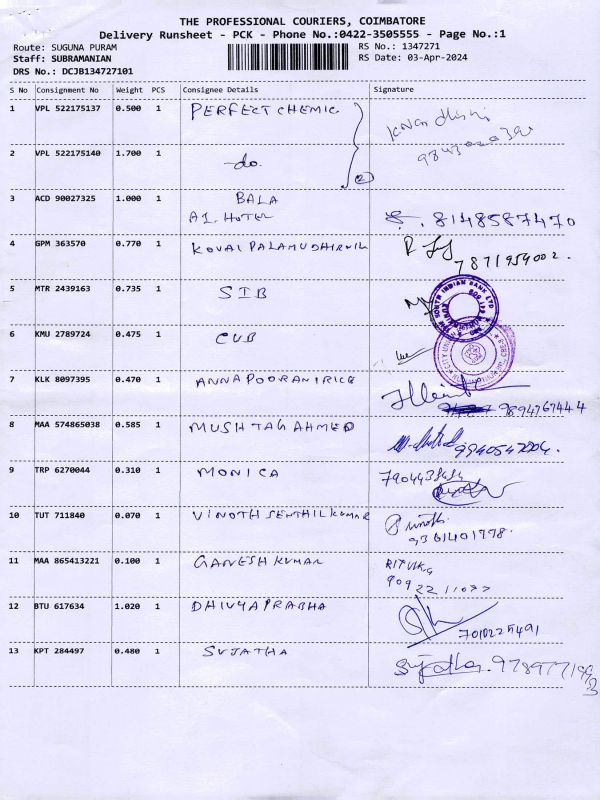 THE PROFESSIONAL COURIERS, COIMBATORE
Delivery Runsheet - PCK - Phone No.:0422-3505555 - Page No.:1
Route: SUGUNA PURAM
RS No.: 1347271
Staff: SUBRAMANIAN
RS Date: 03-Apr-2024
DRS No.: DCJB134727101
S No Consignment No Weight PCS Consignee Details Signature
1 VPL 522175137 0.500 1 PERFECT CHEMIC
2 VPL 522175140 1.700 1 -do. 2
3 ACD 90027325 1.000 1 BALA
A1. HOTEL 8148587470
4 GPM 363570 0.770 1 KOVAI PALAMUDHIRNIL
7871959002.
5 MTR 2439163 0.735 1 SIB
6 KMU 2789724 0.475 1 CUB
7 KLK 8097395 0.470 1 ANNAPOORANI RICE
9894767444
8 MAA 574865038 0.585 1 MUSHTAG AHMED
9940542204.
9 TRP 6270044 0.310 1 MONICA
10 TUT 711840 0.070 1 VINOTH SENTHILKUMAR
9361401778.
11 MAA 865413221 0.100 1 GANESH KUMAR
12 BTU 617634 1.020 1 DHIVYAPRABHA
7010225491
13 KPT 284497 0.480 1 SUJATHA
Sujatha.